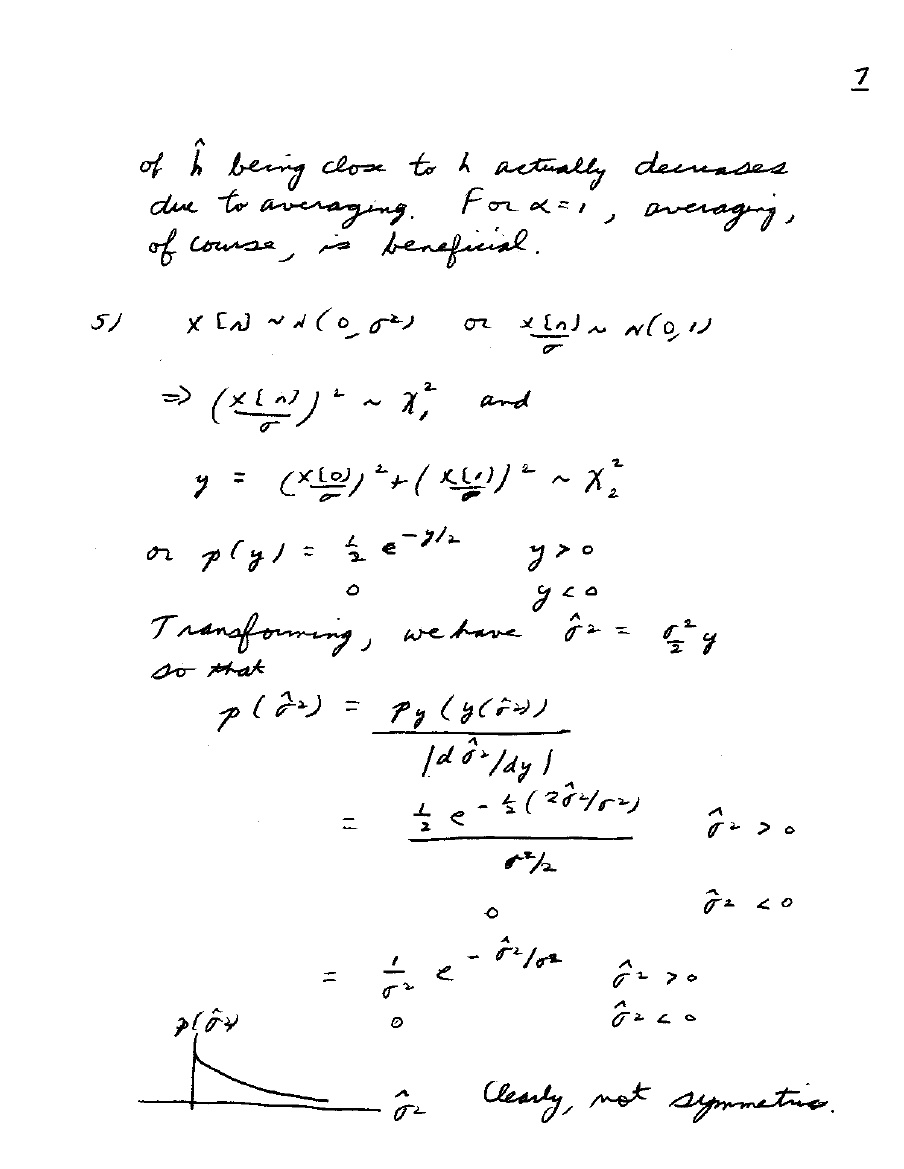 7
of ĥ being close to h actually decreases
due to averaging. For α=1, averaging,
of course, is beneficial.
5) x[n] ~ N(0, σ²) or x[n]/σ ~ N(0,1)
⇒ (x[n]/σ)² ~ χ₁², and
y = (x[0]/σ)² + (x[1]/σ)² ~ χ₂²
or p(y) = ½ e^(-y/2) y > 0
0 y < 0
Transforming, we have σ̂² = σ²/2 y
so that
p(σ̂²) = p_y(y(σ̂²)) / |dσ̂²/dy|
= ½ e^(-½(2σ̂²/σ²)) / (σ²/2) σ̂² > 0
0 σ̂² < 0
= 1/σ² e^(-σ̂²/σ²) σ̂² > 0
p(σ̂²) 0 σ̂² < 0
σ̂² Clearly, not symmetric.